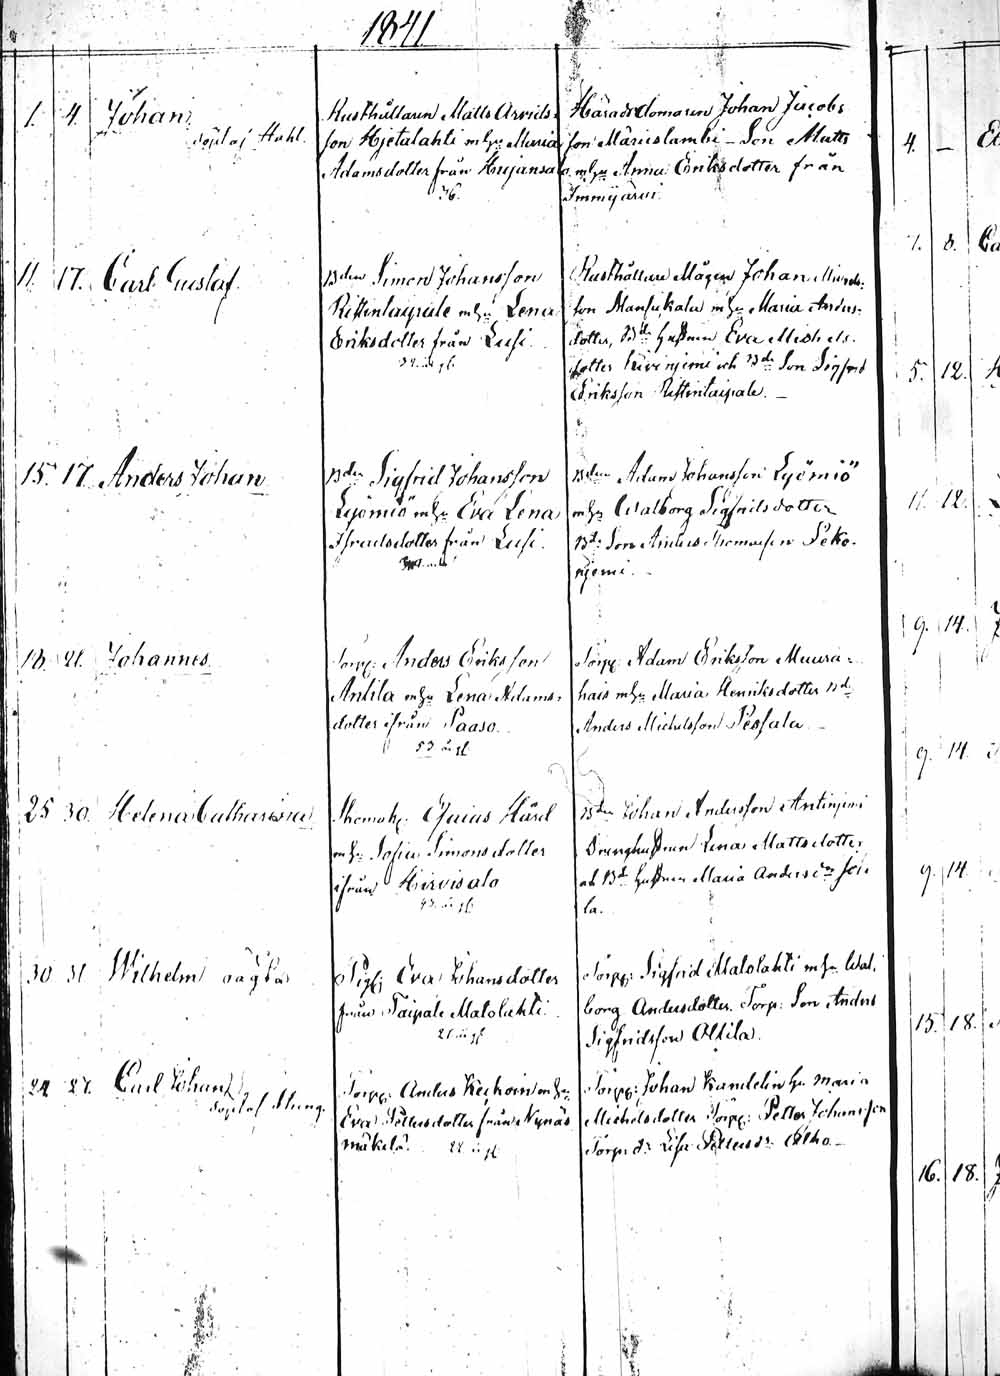 1841
1. 4. Johan
döpt af Hahl.
Rusthållaren Matts Arvids-
son Hjetalahti m h:u Maria
Adamsdotter från Hujansalo
36.
Häradsdomaren Johan Jacobs
son Märieslambi – Son Matts
m h:u Anna Eriksdotter från
Immijärvi.
11. 17. Carl Gustaf.
Bden Simon Johansson
Rittentaipale m h:u Lena
Eriksdotter från Lusi.
Rusthållare Mågen Johan
son Mansikala m h:u Maria Anders-
dotter, Bde hustrun Eva Michels-
dotter Kivinjemi och Bde Son Sigfred
Eriksson Rittentaipale. –
15. 17. Anders Johan
Bden Sigfrid Johansson
Lyömiö m h:u Eva Lena
Israelsdotter från Lusi.
Bden Adam Johansson Lyömiö
m h:u Walborg Sigfridsdotter
Bde Son Anders Thomasson Peko-
njemi. –
18. 21. Johannes
Torp: Anders Eriksson
Antila m h:u Lena Adams-
dotter ifrån Paaso.
53 å gl
Torp: Adam Eriksson Muura-
hais m h:u Maria Henriksdotter Bd
Anders Michelsson Pessala. –
25 30. Helena Catharina
Skomak: Gaius Hård
m h:u Sofia Simonsdotter
ifrån Hirvisalo
43 å gl
Bden Johan Andersson Antinjemi
Drenghustrun Lena Mattsdotter
och Bde hustrun Maria Andersdr Joi-
la.
30 31 Wilhelm oägta
Pig: Eva Johansdotter
från Taipale Matolahti.
21 å gl
Torp: Sigfrid Matolahti m h:u Wal-
borg Andersdotter. Torp: Son Anders
Sigfridsson Ollila.
24 27. Carl Johan
döpt af Stung.
Torp: Anders Keihoin m h:u
Eva Pettersdotter från Nynäs
Mäkelä. 22 å gl
Torp: Johan Kandelin h:u Maria
Michelsdotter Torp: Petter Johansson
Torp: dr Lisa Pettersdr Ahlho –
4. –
7. 8. Ca
5. 12.
11. 12.
9. 14.
9. 14.
9. 14.
15. 18.
16. 18.